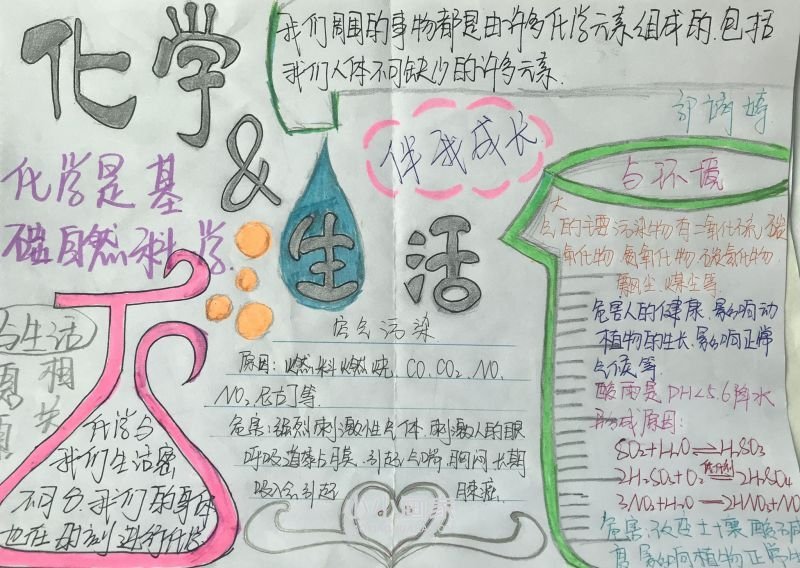 化学
&
生活
我们周围的事物都是由许多化学元素组成的,包括
我们人体不可缺少的许多元素.
伴我成长
化学是基
础自然科学.
与生活
息 相
息 关
化学与
我们生活密
不可分,我们的身体
也在时刻进行化学
空气污染
原因:燃料燃烧.CO.CO2.NO.
NO2.尼古丁等
危害:强烈刺激性气体.刺激人的眼
呼吸道黏膜.引起气喘.胸闷.长期
吸入会引起 肺癌.
与环境
大
气的主要污染物有二氧化硫,碳
氧化物,氮氧化物,碳氢化物,
飘尘.煤尘等.
危害人的健康.影响动
植物的生长.影响正常
气候等.
酸雨是PH<5.6降水
形成原因:
SO2+H2O⇌H2SO3
2H2SO3+O2 催化剂 2H2SO4
3NO2+H2O→2HNO3+NO
危害:改变土壤酸
影响植物正常